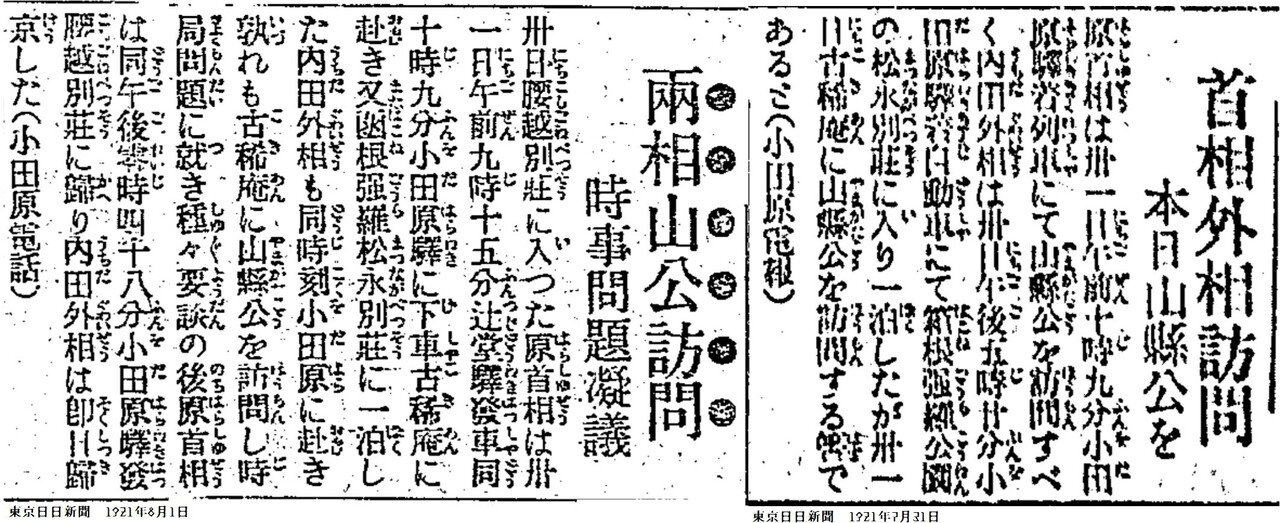 首相外相訪問
本日山縣公を
原首相は卅一日午前十時九分小田
原驛着列車にて山縣公を訪問すべ
く內田外相は卅日午後五時廿分小
田原驛着自動車にて箱根强羅公園
の松永別莊に入り一泊したが卅一
日古稀庵に山縣公を訪問する筈で
ある(小田原電報)
兩相山公訪問
時事問題凝議
卅日腰越別莊に入つた原首相は卅
一日午前九時十五分辻堂驛發車同
十時九分小田原驛に下車古稀庵に
赴き又函根强羅松永別莊に一泊し
た內田外相も同時刻小田原に赴き
孰れも古稀庵に山縣公を訪問し時
局問題に就き種々要談の後原首相
は同午後零時四十八分小田原驛發
腰越別莊に歸り內田外相は卽日歸
京した(小田原電話)
東京日日新聞 1921年8月1日
東京日日新聞 1921年7月31日